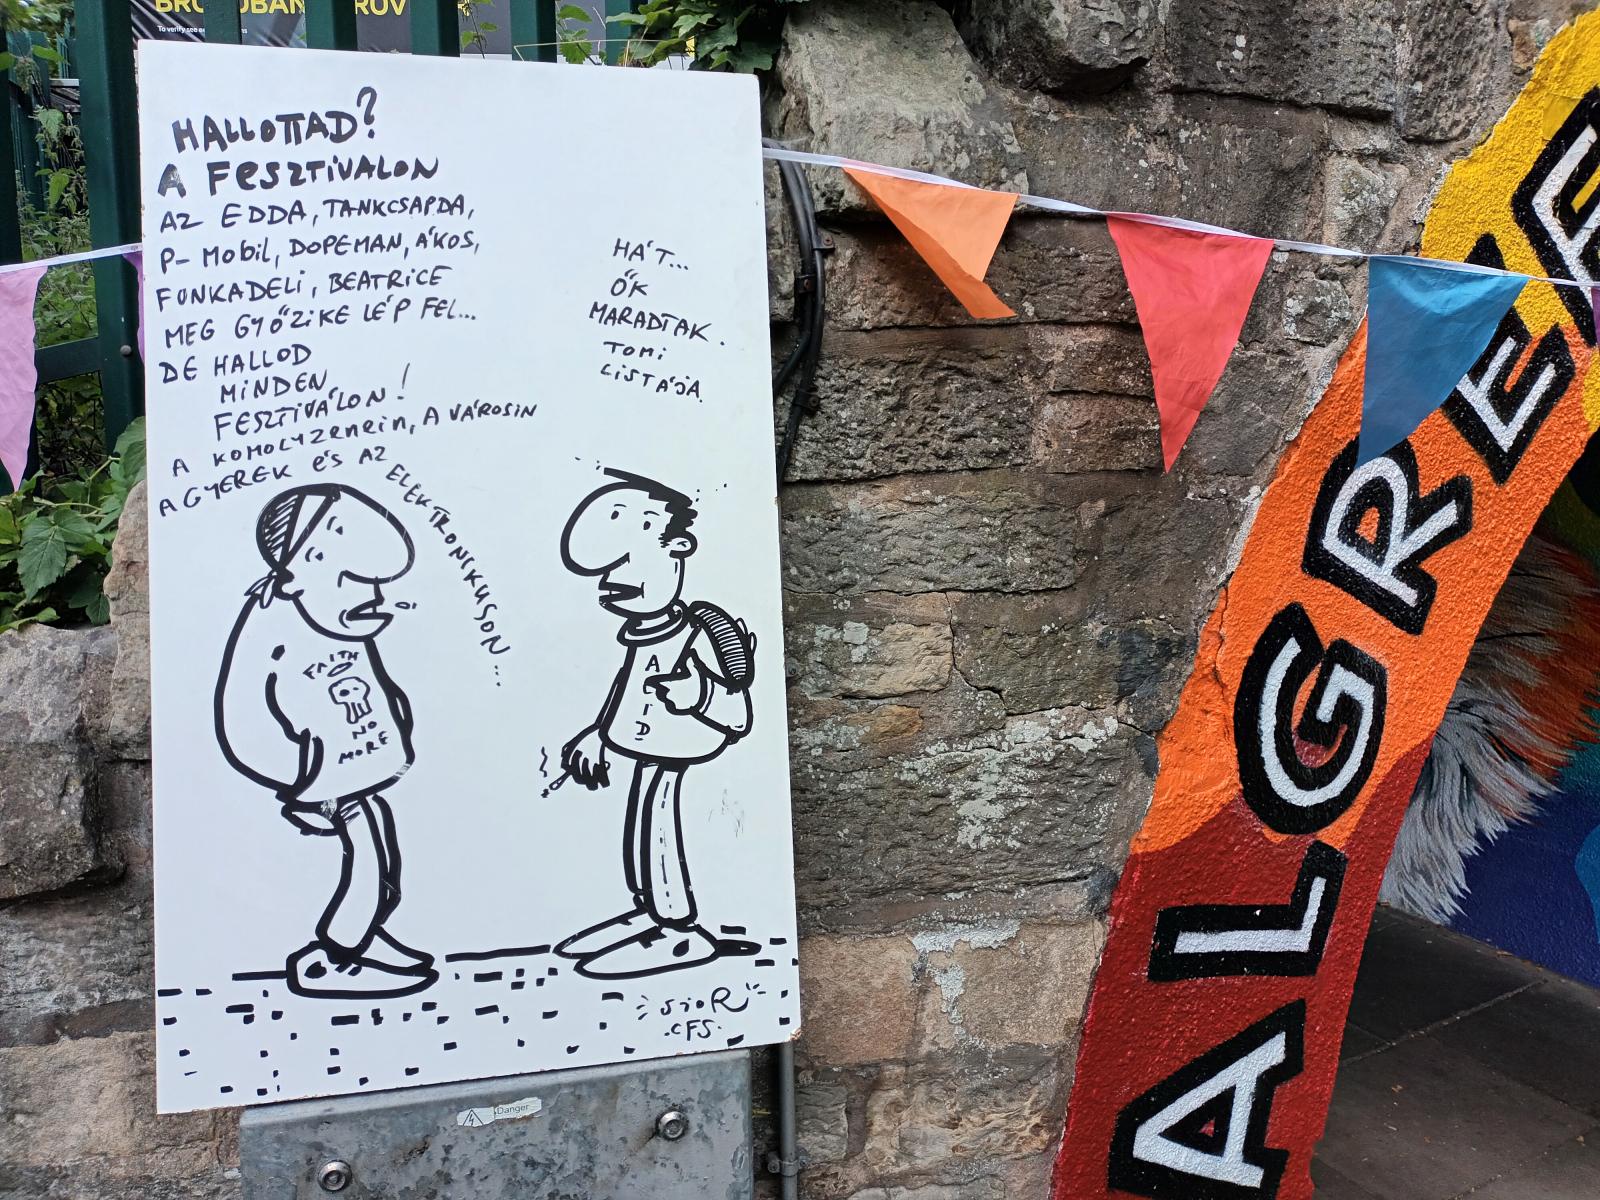 HALLOTTAD?
A FESZTIVALON
AZ EDDA, TANKCSAPDA,
P-MObil, DOPEMAN, ÁKOS,
FUNKADELi, BEATRICE
MEG GYŐZiKE LÉP FEL...
DE HALLOD
MiNDEN
FESZTiVÁLON!
A KOMOLYZENEIN, A VÁROSIN
A GYEREK ÉS AZ
ELEKTRONIKUSON...
HÁT...
ŐK
MARADTAK.
TOMi
LiSTÁJA.
FAITH
NO
MORE
ACID
SJOR
CFS.
Danger
To verify see
ALGREE